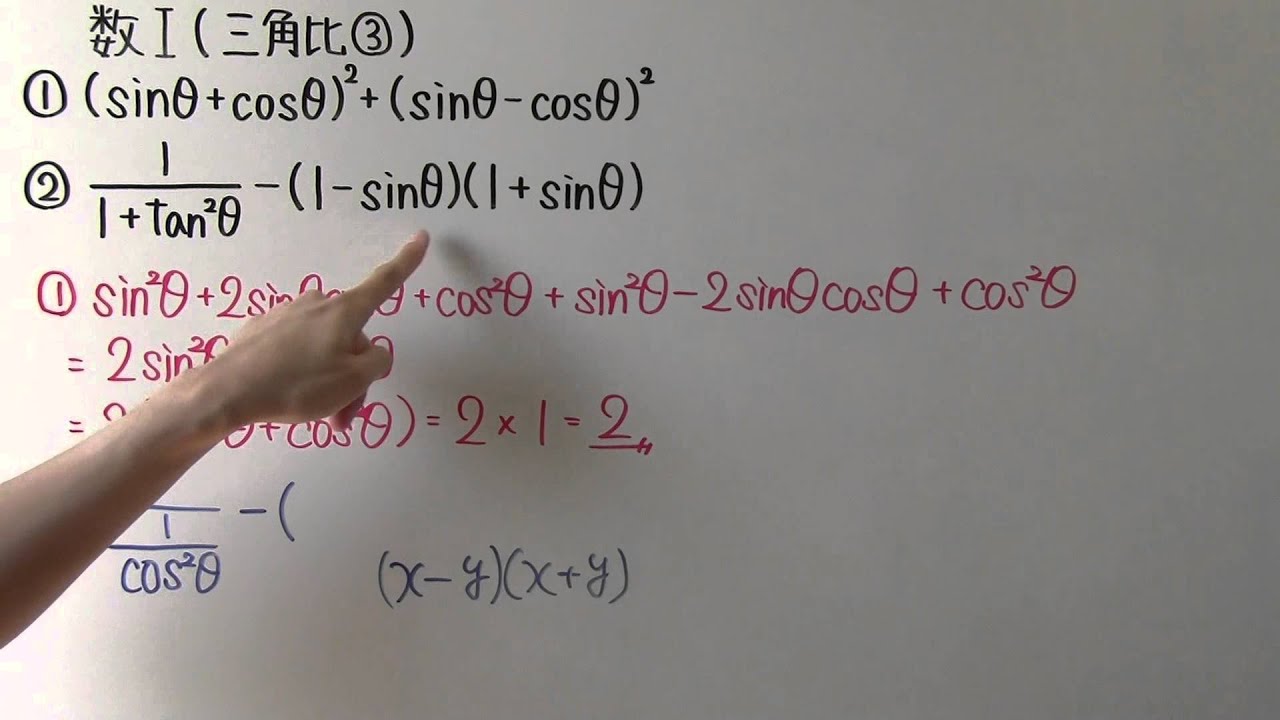 数I(三角比③)
① (sinθ+cosθ)²+(sinθ-cosθ)²
② 1/(1+tan²θ) -(1-sinθ)(1+sinθ)
① sin²θ+2sinθ θ+cos²θ+sin²θ-2sinθcosθ+cos²θ
= 2sin²θ
= 2 θ+cos²θ)=2×1=2
1/(1/cos²θ) -(
(x-y)(x+y)